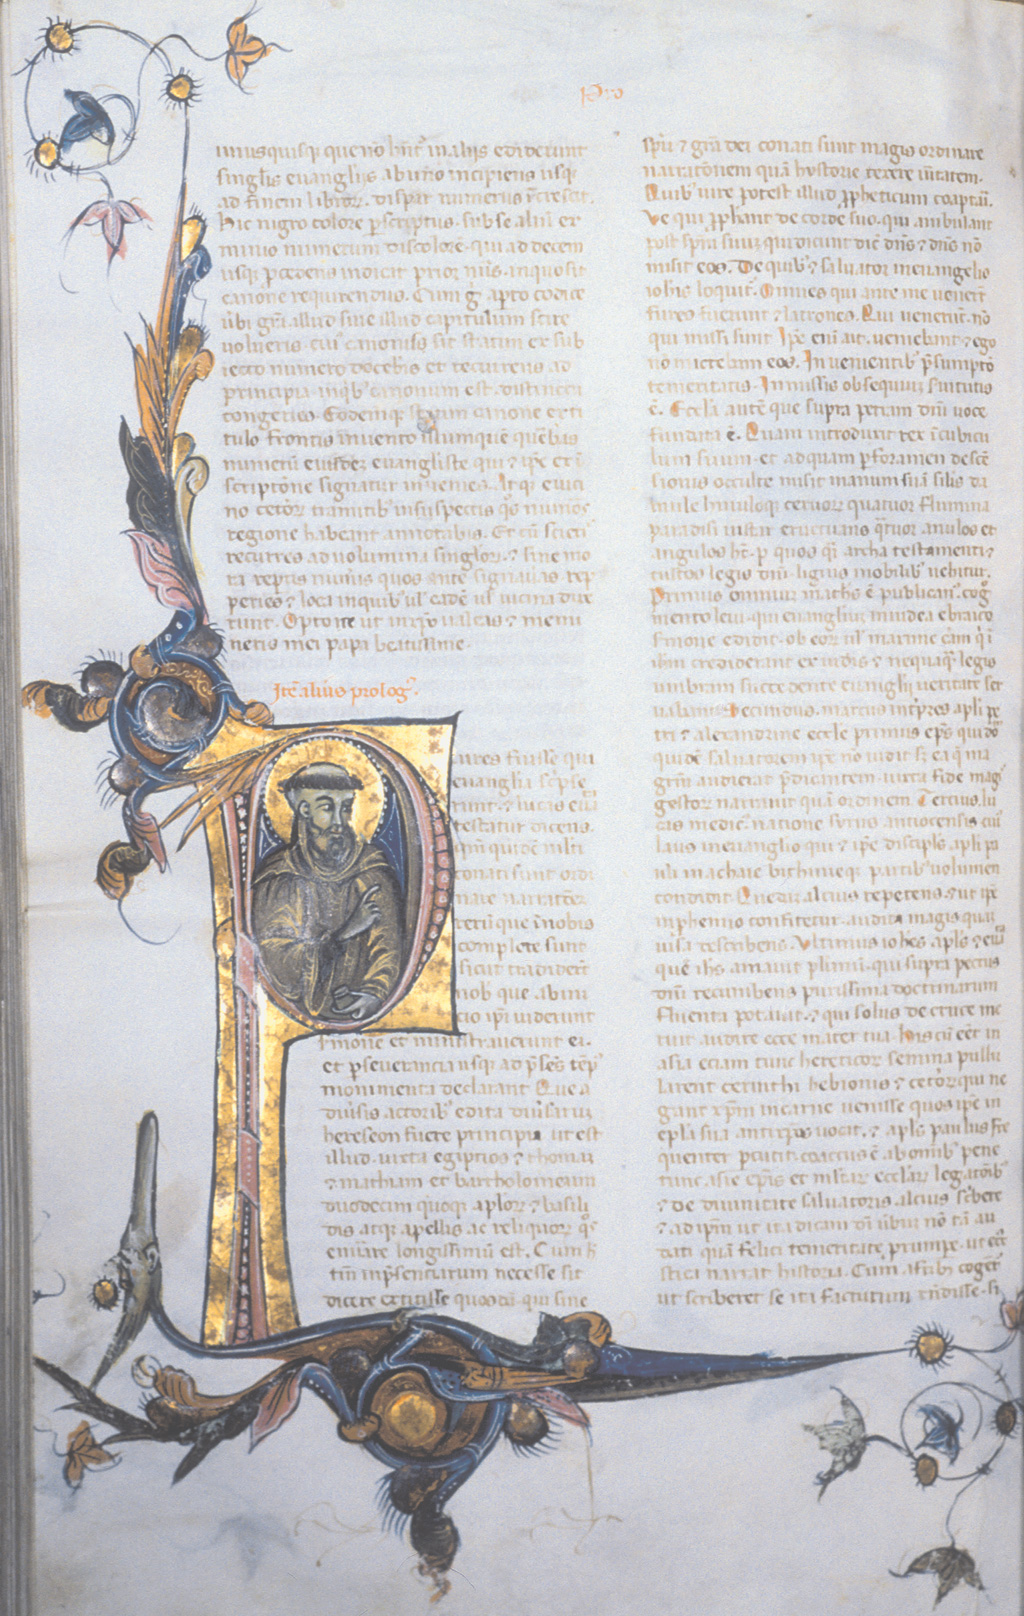 Pro
unusquisque quem hnt in aliis ediderunt
singlis evangliis ab uno incipiens usq
ad finem libror. dispar numerus icrescit.
hic nigro colore pscriptus. sub se aliu ex
minio numerum discolore. qui ad decem
usq pcedens indicit prior nus. in quo sit
canone requirendus. Cum g apto codice
ubi gra. illud sive illud capitulum scire
volueris cui canonis sit statim ex sub
iecto numero doceberis et recurrens ad
principia inqb canonum est. distincta
congeries. Eodemq statim canone ex ti
tulo frontis invento illumque quebas
numeru eiusde evangliste qui ipe ex i
scriptone signatur invenies. Atq e vici
no cetor tramitib inspectis qs numos
e regione habeant annotabis. Et cu scieri
recurres ad volumina singlor. sine mo
ra reptis numis quos ante signaveras rep
peries loca in quib ul eade ul vicina dixe
runt. Opto ut in xpo valeas memi
neris mei papa beatissime.
Ite alius prolog.
Plures fuisse qui
evanglia scpse
runt. lucas eva
testatur dicens.
qm quide mlti
conati sunt ordi
nare narratoe
rerum que in nobis
complete sunt
sicut tradidert
nob que ab ini
cio ipi viderunt
smone et ministraverunt ei.
et pseverancia usq ad psens temp
monimenta declarant Que a
divsis actorib edita divsarum
hereseon fuere principia ut est
illud. iuxta egiptios thomam
mathiam et bartholomeum
duodecim quoq aplor basili
dis atq apellis ac reliquor qs
enumare longissimu est. Cum h
tm inpsenciarum necesse sit
dicere extitisse quosda. qui sine
spu gra dei conati sunt magis ordinare
narratonem qua hystorie texere vitatem.
Quib iure potest illud ppheticum coaptari.
Ve qui pphant de corde suo. qui ambulant
post spm suum qui dicunt dic dns dns no
misit eos. De quib salvator in evangelio
iohis loquit. Omnes qui ante me venert
fures fuerunt latrones. Qui venerut. no
qui missi sunt Ipe eni ait. veniebant ego
no mictebam eos. In venientib psumpto
temeritatis. In missis obsequium svitutis
e. Ecclia aute que supra petram dni voce
fundata e. Quam introduxit rex i cubicu
lum suum. et ad quam p foramen desce
sionis occulte misit manum sua silis da
mule hinuloq cervor. quatuor flumina
paradisi instar eructans qtuor anulos et
angulos ht. p quos qi archa testamenti
custos legis dni. lignis mobilib vehitur.
Primus omnium maths e publican. cog
mento levi. qui evanglium in iudea ebraico
smone edidit. ob eor ul maxime cam qi i
ihm crediderant ex iudis nequaq legis
umbram succedente evanglii veritate ser
vabant. Secundus. marcus intpres apli pe
tri alexandrine eccle primus eps qui dn
quide salvatorem ipe no vidit s ea q ma
grm audierat pdicantem. iuxta fide mag
gestor narravit qua ordinem. Tercius. lu
cas medic. natione syrus antiocensis cui
laus in evanglio qui ipe discipls apli pa
uli in achaie bithinieq partib volumen
condidit. Quedam alcius repetens. ut ipe
in phemio confitetur. audita magis quam
visa rescribens. Ultimus iohes apls eva
que ihs amavit plimu. qui supra pectus
dni recumbens purissima doctrinarum
fluenta potavit. qui solus de cruce me
ruit audire ecce mater tua. his cu eet in
asia eciam tunc hereticor semina pullu
larent cerinthi hebionis cetor qui ne
gant xpm in carne venisse quos ipe in
epli sua antixpos vocit. apls paulus fre
quenter pcutit. coactus e ab omib pene
tunc asie epis et mltar ecclar legatonib
de divinitate salvatoris alcius scbere
ad ipm ut ita dicam di vbum no ta au
daci qua felici temeritate prumpe. ut ecc
stica narrat historia. Cum a frib coget
ut scriberet se ita facturum rndisse. si